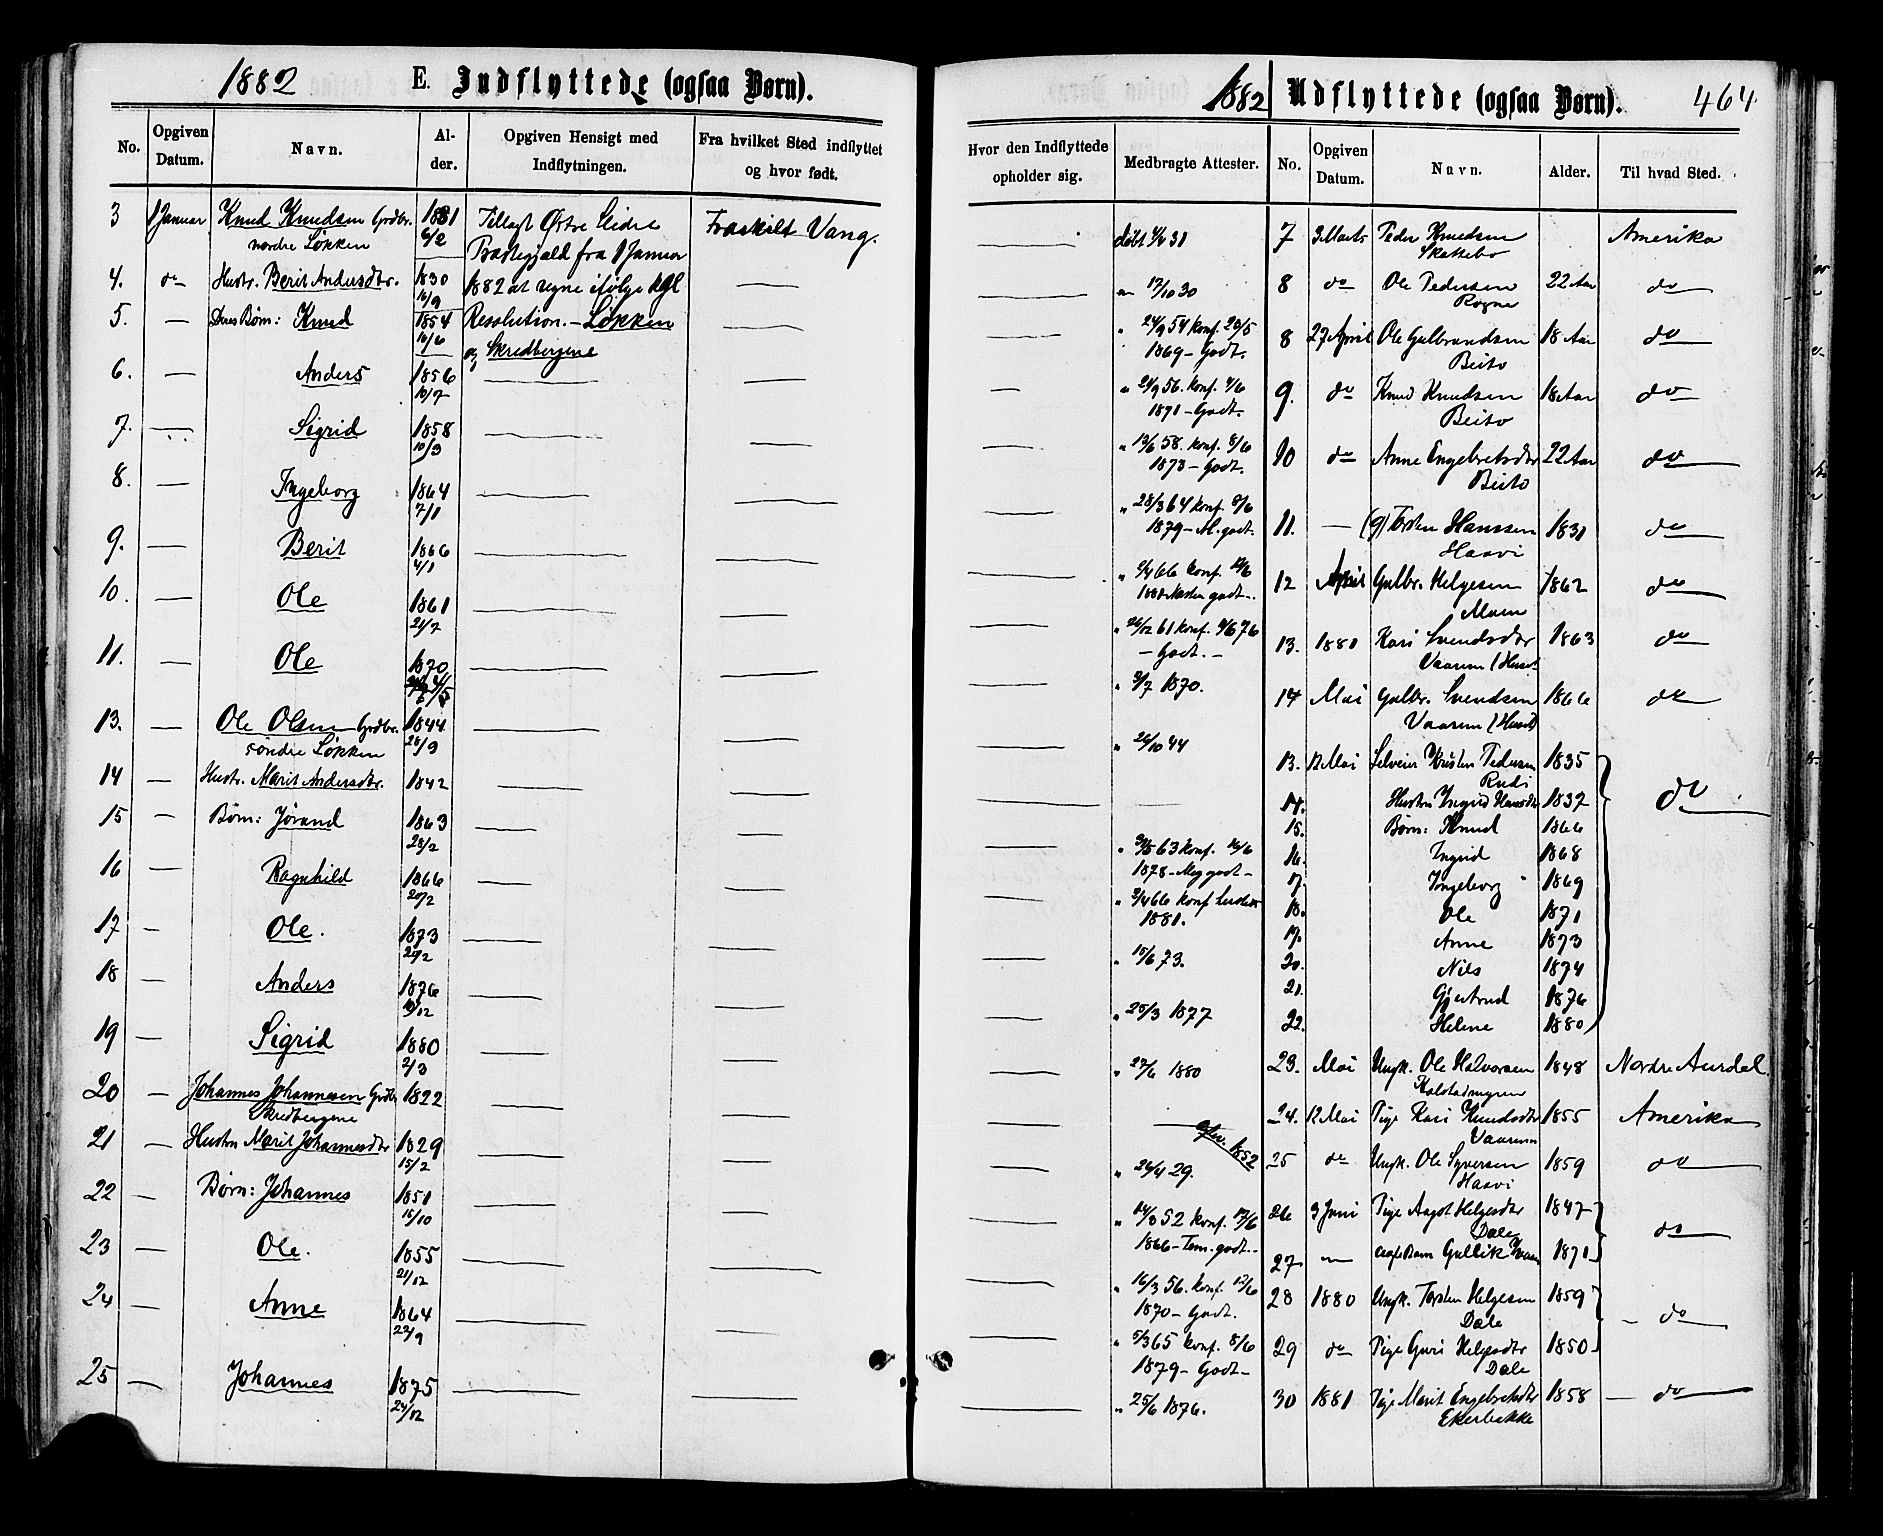 1882 E. Indflyttede (ogsaa Børn).
No. Opgiven Datum. Navn. Alder. Opgiven Hensigt med Indflytningen. Fra hvilket Sted indflyttet og hvor født.
3 1 Januar Knud Knudsen Grdbr. 1831 Tillagt Østre Slidre Fraskilt Vang.
nordre Løkken 6/2 Prestegjæld fra 1 Januar
4. do Hustr. Berit Andersdtr. 1830 1882 at regne ifølge kgl
16/9
5. — Deres Børn: Knud 1854 Resolution. – Løkken
16/6 og Skredbergene
6. — Anders 1856
16/7
7. — Sigrid 1858
10/3
8. — Ingeborg 1864
7/1
9. — Berit 1866
4/1
10. — Ole 1861
21/7
11. — Ole 1870
4/5
13. — Ole Olsen Grdbr. 1844
søndre Løkken 28/9
14 — Hustr. Marit Andersdtr. 1842
15 — Børn: Jørand 1863
28/2
16 — Ragnhild 1866
20/2
17 — Ole. 1873
29/2
18 — Anders 1876
19 — Sigrid 1880
2/3
20 — Johannes Johannesen Grdbr 1822
Skredbergene
21 — Hustru Marit Johannesdtr 1829
15/2
22 — Børn: Johannes 1851
15/10
23 — Ole. 1855
21/12
24 — Anne 1864
22/9
25 — Johannes 1875
24/12
1882 Udflyttede (ogsaa Børn). 464
Hvor den Indflyttede opholder sig. Medbragte Attester. No. Opgiven Datum. Navn. Alder. Til hvad Sted.
døbt 4/4 31 7 3 Marts Peder Knudsen Amerika
Skattebo
17/10 30 8 do Ole Pedersen 22 Aar do
Rogne
24/9 54 konf. 20/5 8 27 April Ole Gulbrandsen 18 Aar do
1869 – Godt. Beito
21/9 56. konf. 4/6 9. do Knud Knudsen 18 Aar do
1871 – Godt. Beito
13/6 58. konf. 8/6 10 do Anne Engebretsdtr 22 Aar do
1873 – Godt. Beito
28/3 64 konf. 8/6 11. — (g) Torsten Hanssen 1831 do
1879 – M. godt. Haavi
2/4 66 konf. 12 April Gulbr. Helgesen 1862 do
godt. Moen
26/12 61 konf. 4/6 76 13. 1880 Kari Svendsdtr 1863 do
– Godt. – Vaarum
3/7 1870. 14 Mai Gulbr. Svendsen 1866 do
Vaarum
26/10 44 13. 12 Mai Selveier Kristen Pedersen 1835 do
Rudi
— 14. Hustru Ingrid Hansdtr 1832
15. Børn: Knud 1866
63 konf. 16/6 16. Ingrid 1868
1878 – Meg godt – 17. Ingeborg 1869
2/4 66 konf 18. Ole 1871
1881. 19. Anne 1873
15/6 73. 20. Nils 1874
21. Gjertrud 1876
25/3 1877 22. Helene 1880
27/6 1880 23. Mai Ungk. Ole Halvorsen 1848 Nordre Aurdal.
24. 12 Mai Pige Kari Knudsdtr 1855 Amerika
1852 Vaarum
26/4 29. 25 do Ungk. Ole Syversen 1859 do
Haavi
14/3 52 konf. 17/6 26 3 Juni Pige Aagot Helgesdtr 1847 do
1866 – Tem. godt. – Dale
27 — Gullik 1871
16/3 56. konf. 12/6 28 1880 Ungk. Torsten Helgesen 1859 – do
1870 – Godt. Dale
5/3 65 konf. 8/6 29 do Pige Guri Helgesdtr 1850
1879 – Godt – Dale
25/6 1876. 30 1881 Pige Marit Engebretsdtr 1858 – do
Ekerbakke